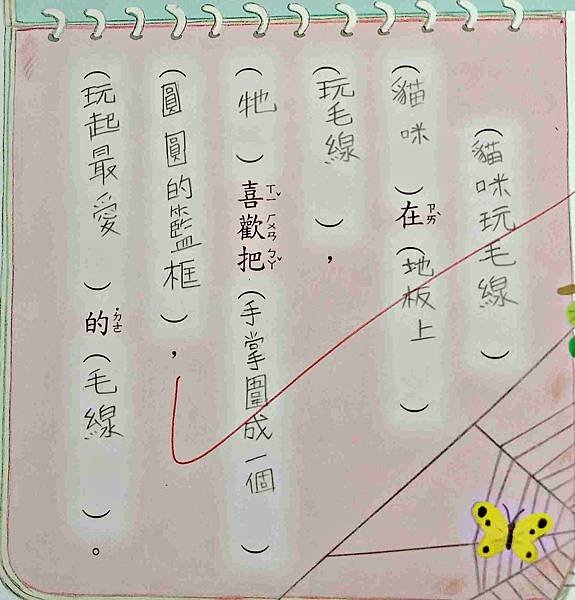 (貓咪玩毛線)
(貓咪)在ㄗㄞˋ(地板上)
(玩毛線),
(牠)喜ㄒㄧˇ歡ㄏㄨㄢ把ㄅㄚˇ(手掌圍成一個)
(圓圓的籃框),
(玩起最愛)的˙ㄉㄜ(毛線)。